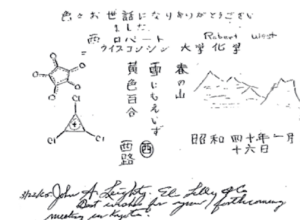 色々お世話になりありがとうござい
ました
西 ロバート Robert West
ウイスコンシン 大学化学
春の山
雪にもえいず
黄色百合
西路
西
昭和四十年一月
十六日
O
O
O
O
O
Cl
Cl
Cl
+
John A. Leighty, Eli Lilly & Co
Best wishes for your forthcoming
meeting in Kyoto!